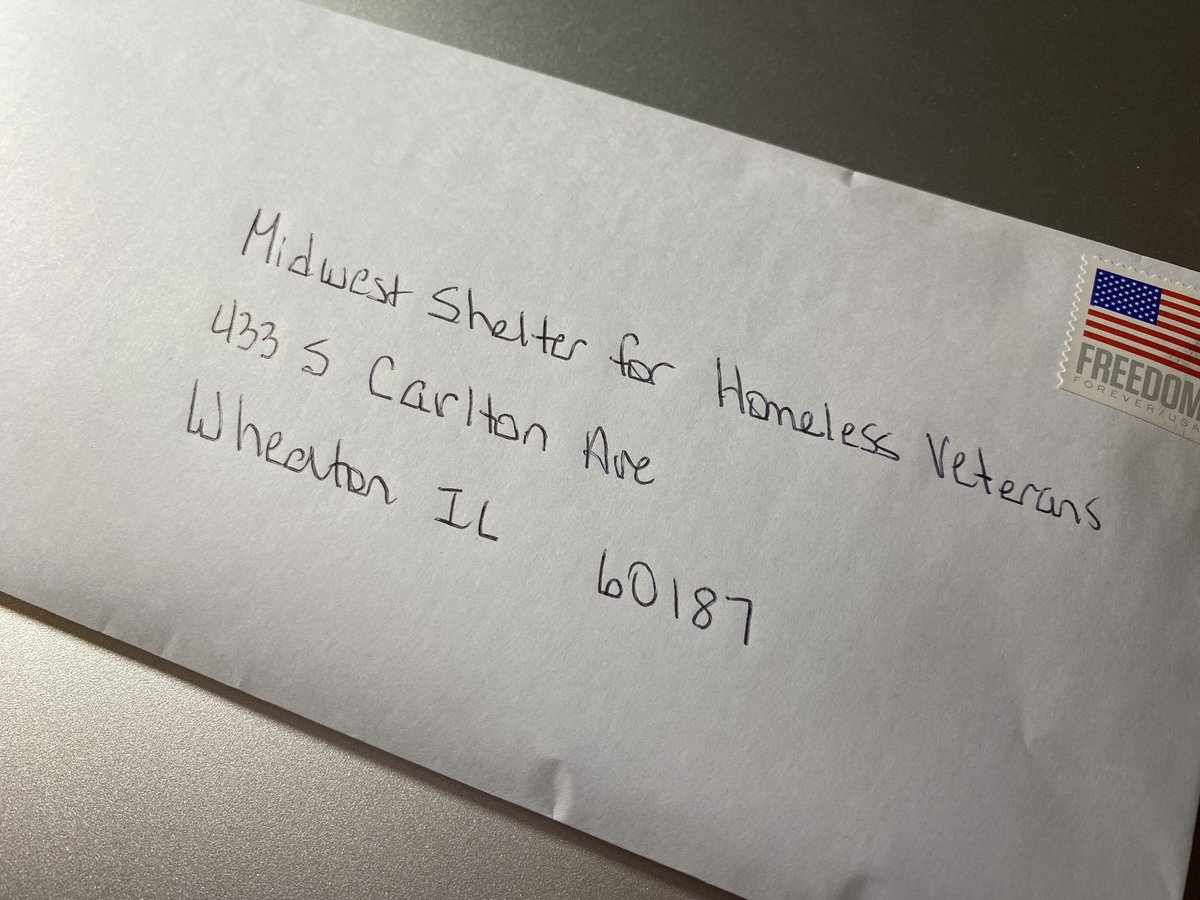 Midwest Shelter for Homeless Veterans
433 S Carlton Ave
Wheaton IL 60187
FREEDOM
FOREVER/USA